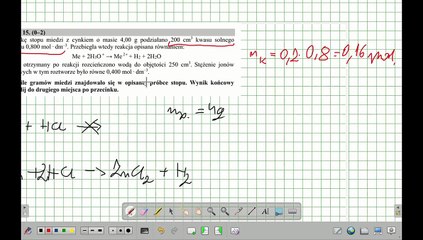 15. (0–2)
kę stopu miedzi z cynkiem o masie 4,00 g podziałano 200 cm³ kwasu solnego
u 0,800 mol · dm⁻³. Przebiegła wtedy reakcja opisana równaniem:
Me + 2H₃O⁺ → Me²⁺ + H₂ + 2H₂O
otrzymany po reakcji rozcieńczono wodą do objętości 250 cm³. Stężenie jonów
ych w tym roztworze było równe 0,400 mol · dm⁻³.
ile gramów miedzi znajdowało się w opisanej próbce stopu. Wynik końcowy
lij do drugiego miejsca po przecinku.
n_k = 0,2 · 0,8 = 0,16 mol
+ HCl
+2HCl → ZnCl₂ + H₂